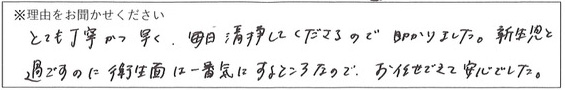 ※理由をお聞かせください
とても丁寧かつ早く、毎日清掃してくださるので助かりました。新生児と
過ごすのに衛生面は一番気にするところなので、お任せできて安心でした。